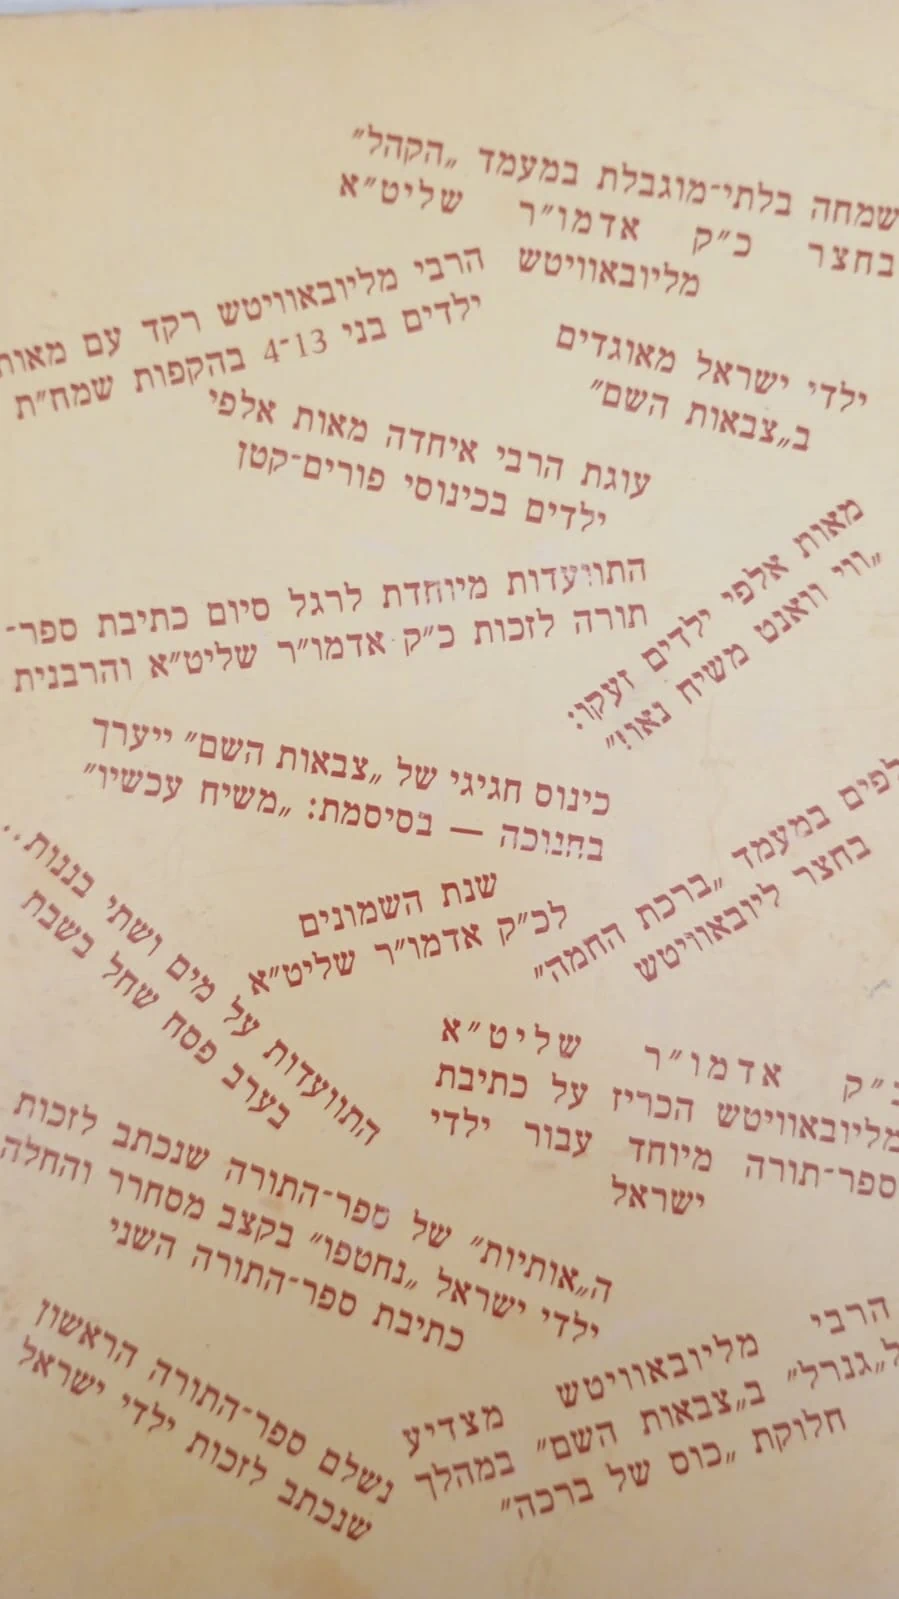 שמחה בלתי־מוגבלת במעמד „הקהל״
בחצר כ״ק אדמו״ר שליט״א
מליובאוויטש
הרבי מליובאוויטש רקד עם מאות
ילדים בני 4־13 בהקפות שמח״ת
ילדי ישראל מאוגדים
ב„צבאות השם״
עוגת הרבי איחדה מאות אלפי
ילדים בכינוסי פורים־קטן
מאות אלפי ילדים זעקו:
„ווי וואנט משיח נאו!״
התוועדות מיוחדת לרגל סיום כתיבת ספר־
תורה לזכות כ״ק אדמו״ר שליט״א והרבנית
כינוס חגיגי של „צבאות השם״ ייערך
בחנוכה — בסיסמת: „משיח עכשיו״
לפים במעמד „ברכת החמה״
בחצר ליובאוויטש
שנת השמונים
לכ״ק אדמו״ר שליט״א
התוועדות על מים ושתי בננות..
בערב פסח שחל בשבת
כ״ק אדמו״ר שליט״א
מליובאוויטש הכריז על כתיבת
ספר־תורה מיוחד עבור ילדי
ישראל
ה„אותיות״ של ספר־התורה שנכתב לזכות
ילדי ישראל „נחטפו״ בקצב מסחרר והחלה
כתיבת ספר־התורה השני
הרבי מליובאוויטש מצדיע
ל„גנרל״ ב„צבאות השם״ במהלך
חלוקת „כוס של ברכה״
נשלם ספר־התורה הראשון
שנכתב לזכות ילדי ישראל